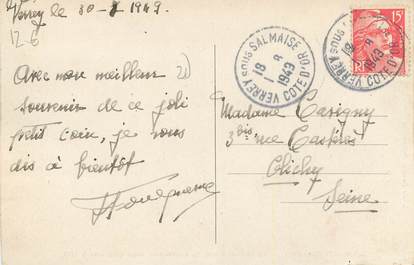 Verrey le 30-7-1949
12-6
Avec mon meilleur
souvenir de ce joli
petit coin, je vous
dis à bientôt
VERREY SOUS SALMAISE
18
1 - 8
1949
COTE D'OR
VERREY SOUS
18
8
1949
COTE D'OR
15
Madame
3 bis rue
Clichy
Seine